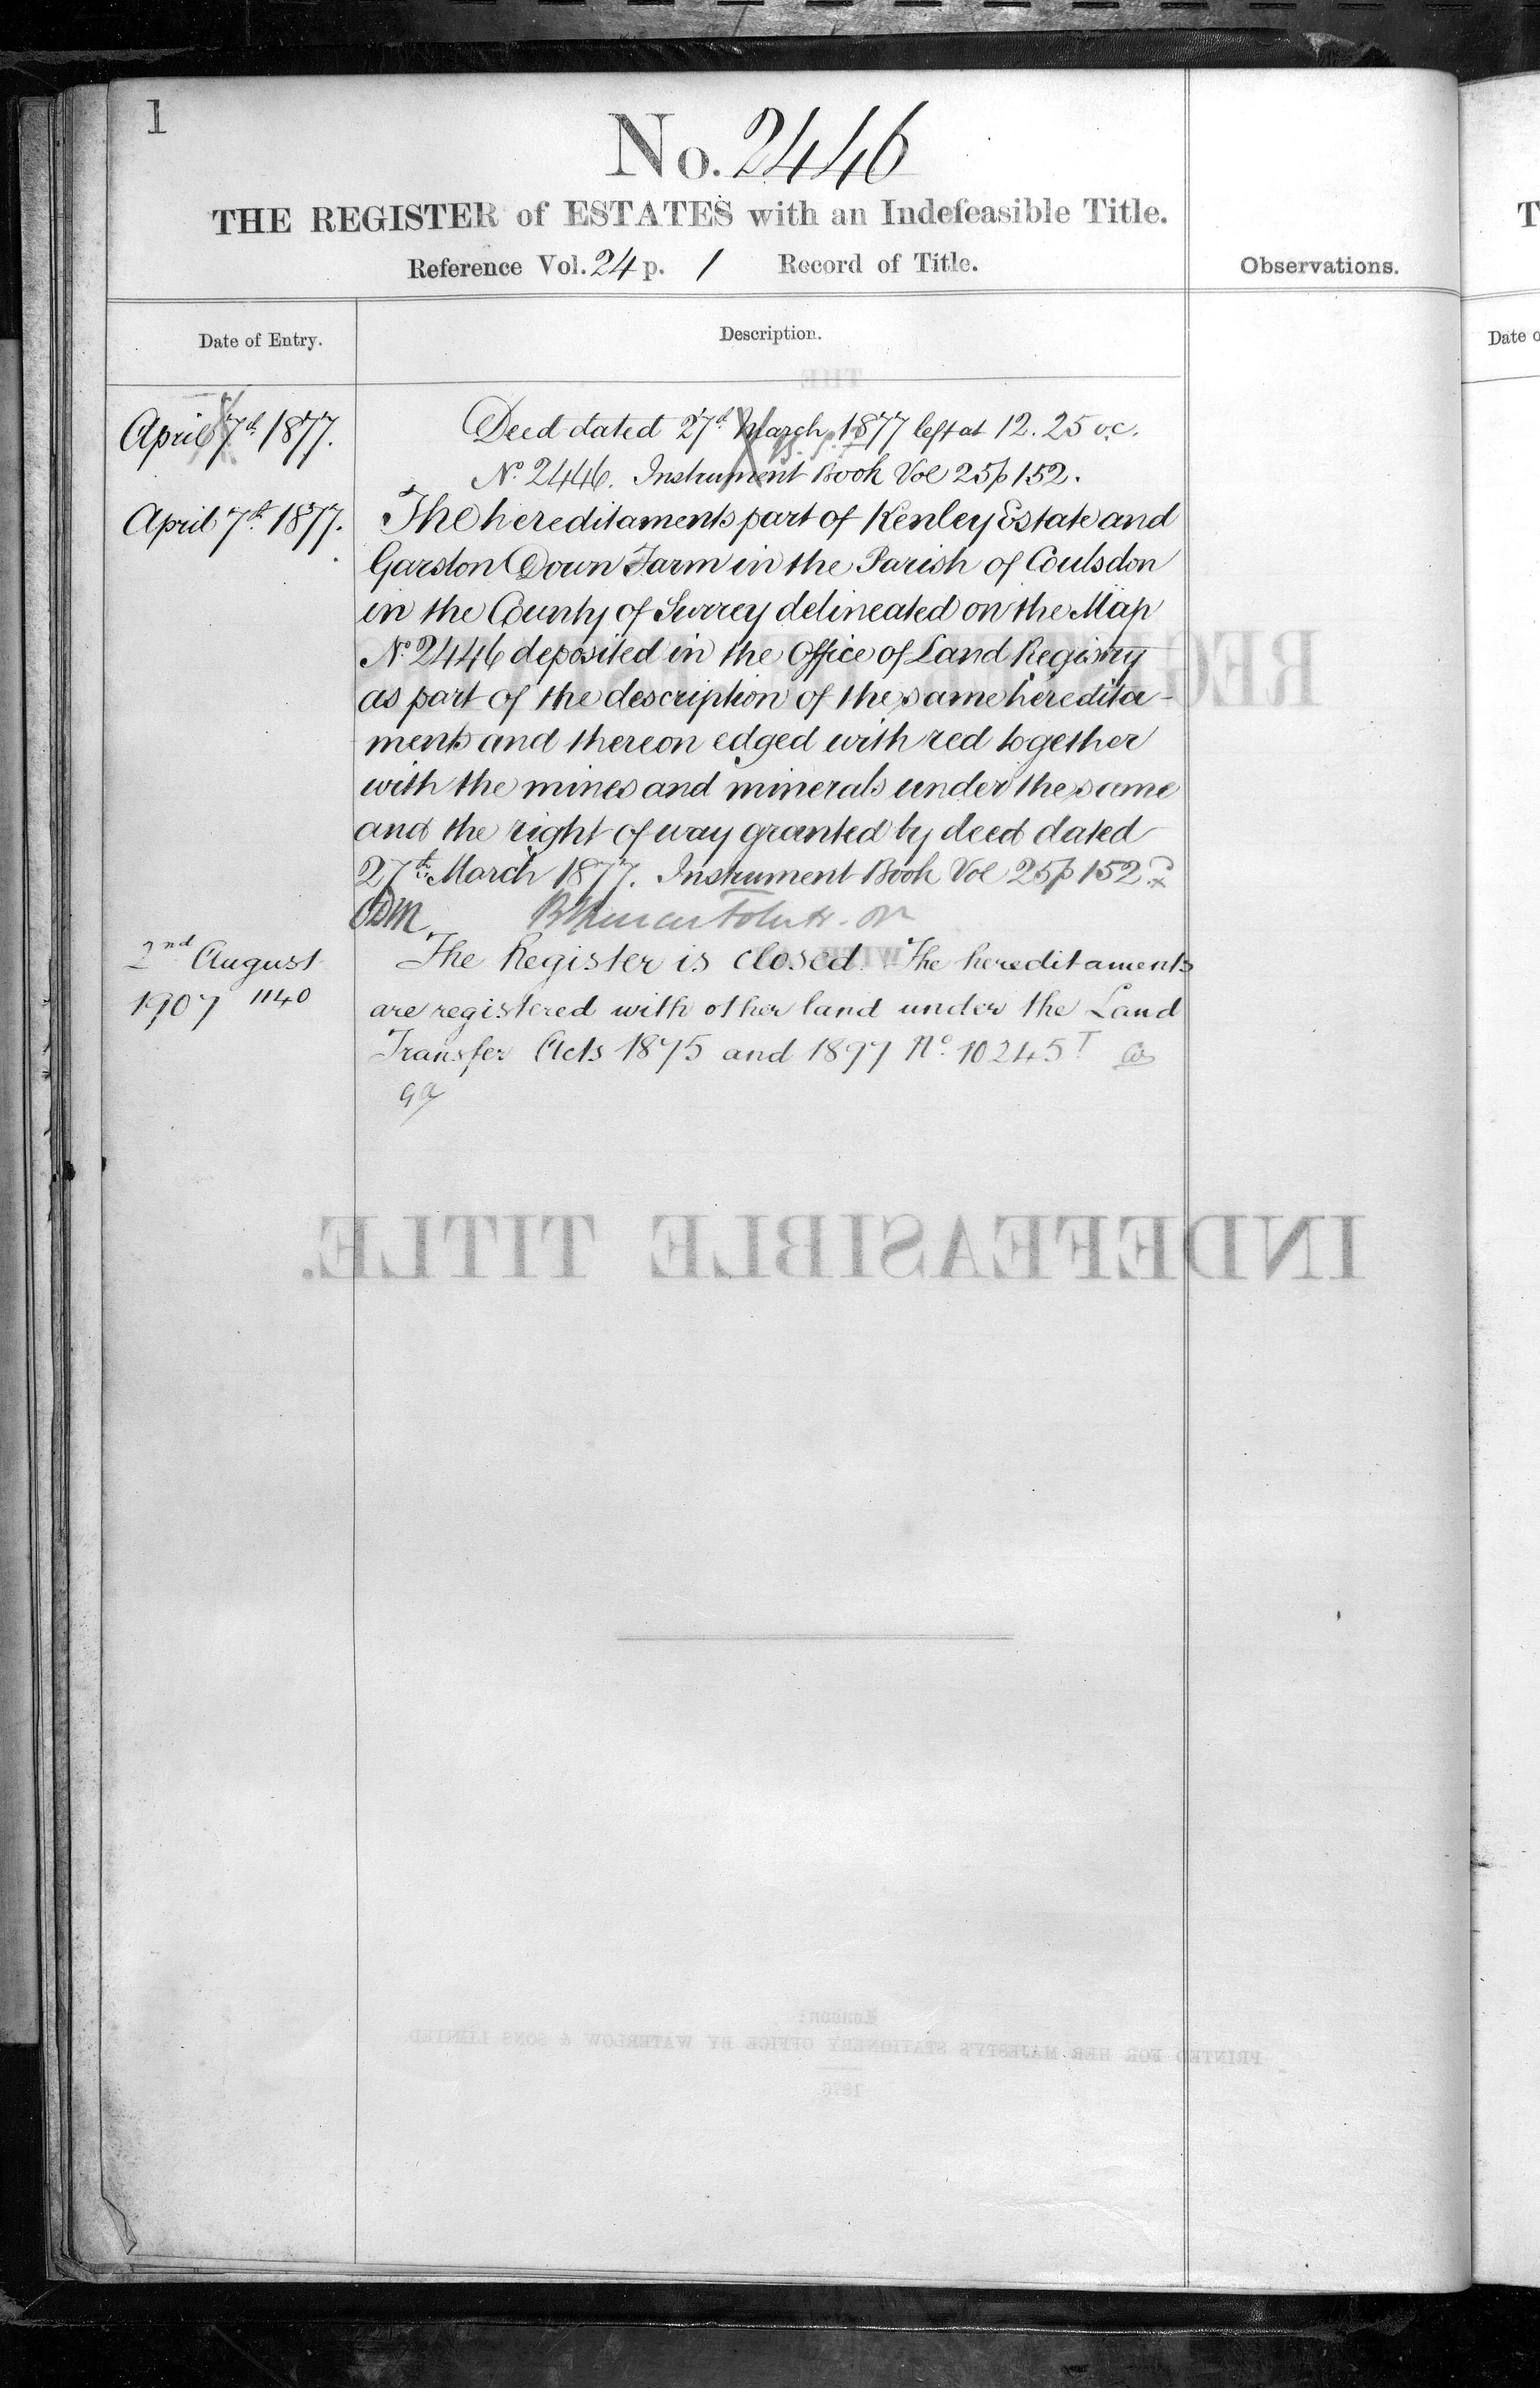 1
No. 2446
THE REGISTER of ESTATES with an Indefeasible Title.
Reference Vol. 24 p. 1 Record of Title.
Observations.
Date of Entry.
Description.
April 7th 1877.
Deed dated 27th March 1877 left at 12.25 o.c.
No. 2446. Instrument Book Vol 25 p 152.
April 7th 1877.
The hereditaments part of Kenley Estate and
Garston Down Farm in the Parish of Coulsdon
in the County of Surrey delineated on the Map
No. 2446 deposited in the Office of Land Registry
as part of the description of the same heredita-
ments and thereon edged with red together
with the mines and minerals under the same
and the right of way granted by deed dated
27th March 1877. Instrument Book Vol 25 p 152.
2nd August
1907 1140
The Register is closed. The hereditaments
are registered with other land under the Land
Transfer Acts 1875 and 1897 No. 10245
THE
REGISTER
WITH
INDEFEASIBLE TITLE.
London:
PRINTED FOR HER MAJESTY'S STATIONERY OFFICE BY WATERLOW & SONS LIMITED
1876
T
Date o